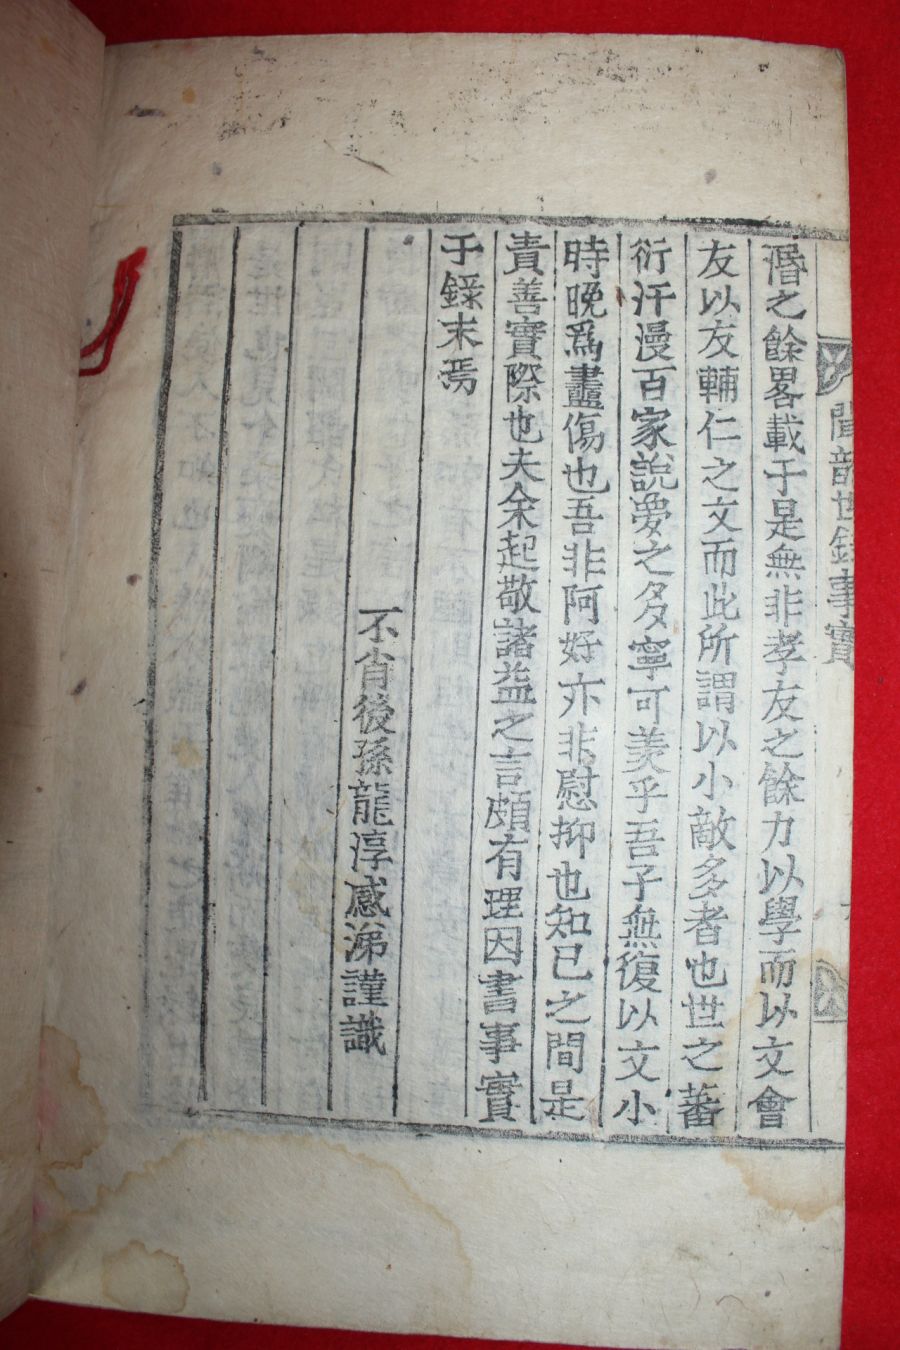 聞韶世錄事實
濳之餘畧載于是無非孝友之餘力以學而以文會
友以友輔仁之文而此所謂以小敵多者也世之蕃
衍汗漫百家說夢之多寧可羡乎吾子無復以文小
時晚爲盡傷也吾非阿好亦非慰抑也知已之間是
責善實際也夫余起敬諸益之言頗有理因書事實
于錄末焉
不肖後孫龍淳感涕謹識